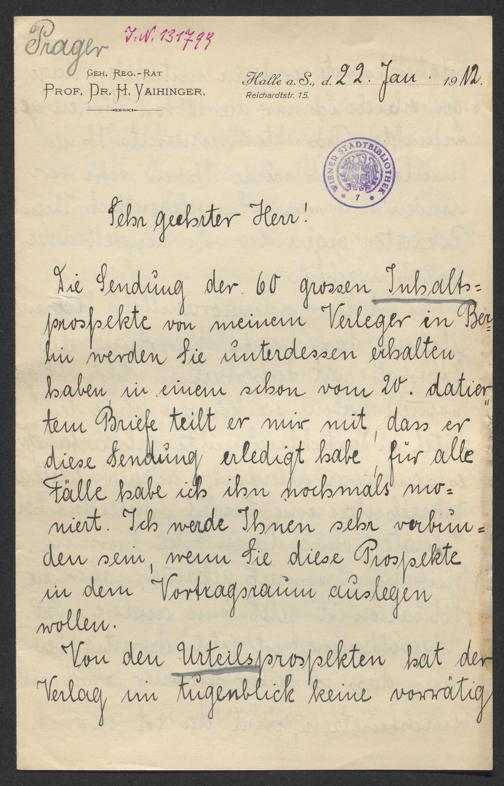 Prager
I.N. 131799
GEH. REG.-RAT
PROF. DR. H. VAIHINGER.
Halle a. S., d. 22. Jan. 1912.
Reichardtstr. 15.
WIENER STADTBIBLIOTHEK
Sehr geehrter Herr!
Die Sendung der 60 grossen Inhalts-
prospekte von meinem Verleger in Ber-
lin werden Sie unterdessen erhalten
haben, in einem schon vom 20. datier-
tem Briefe teilt er mir mit, dass er
diese Sendung erledigt habe, für alle
Fälle habe ich ihn nochmals mo-
niert. Ich werde Ihnen sehr verbun-
den sein, wenn Sie diese Prospekte
in dem Vortragsraum auslegen
wollen.
Von den Urteilsprospekten hat der
Verlag im Augenblick keine vorrätig